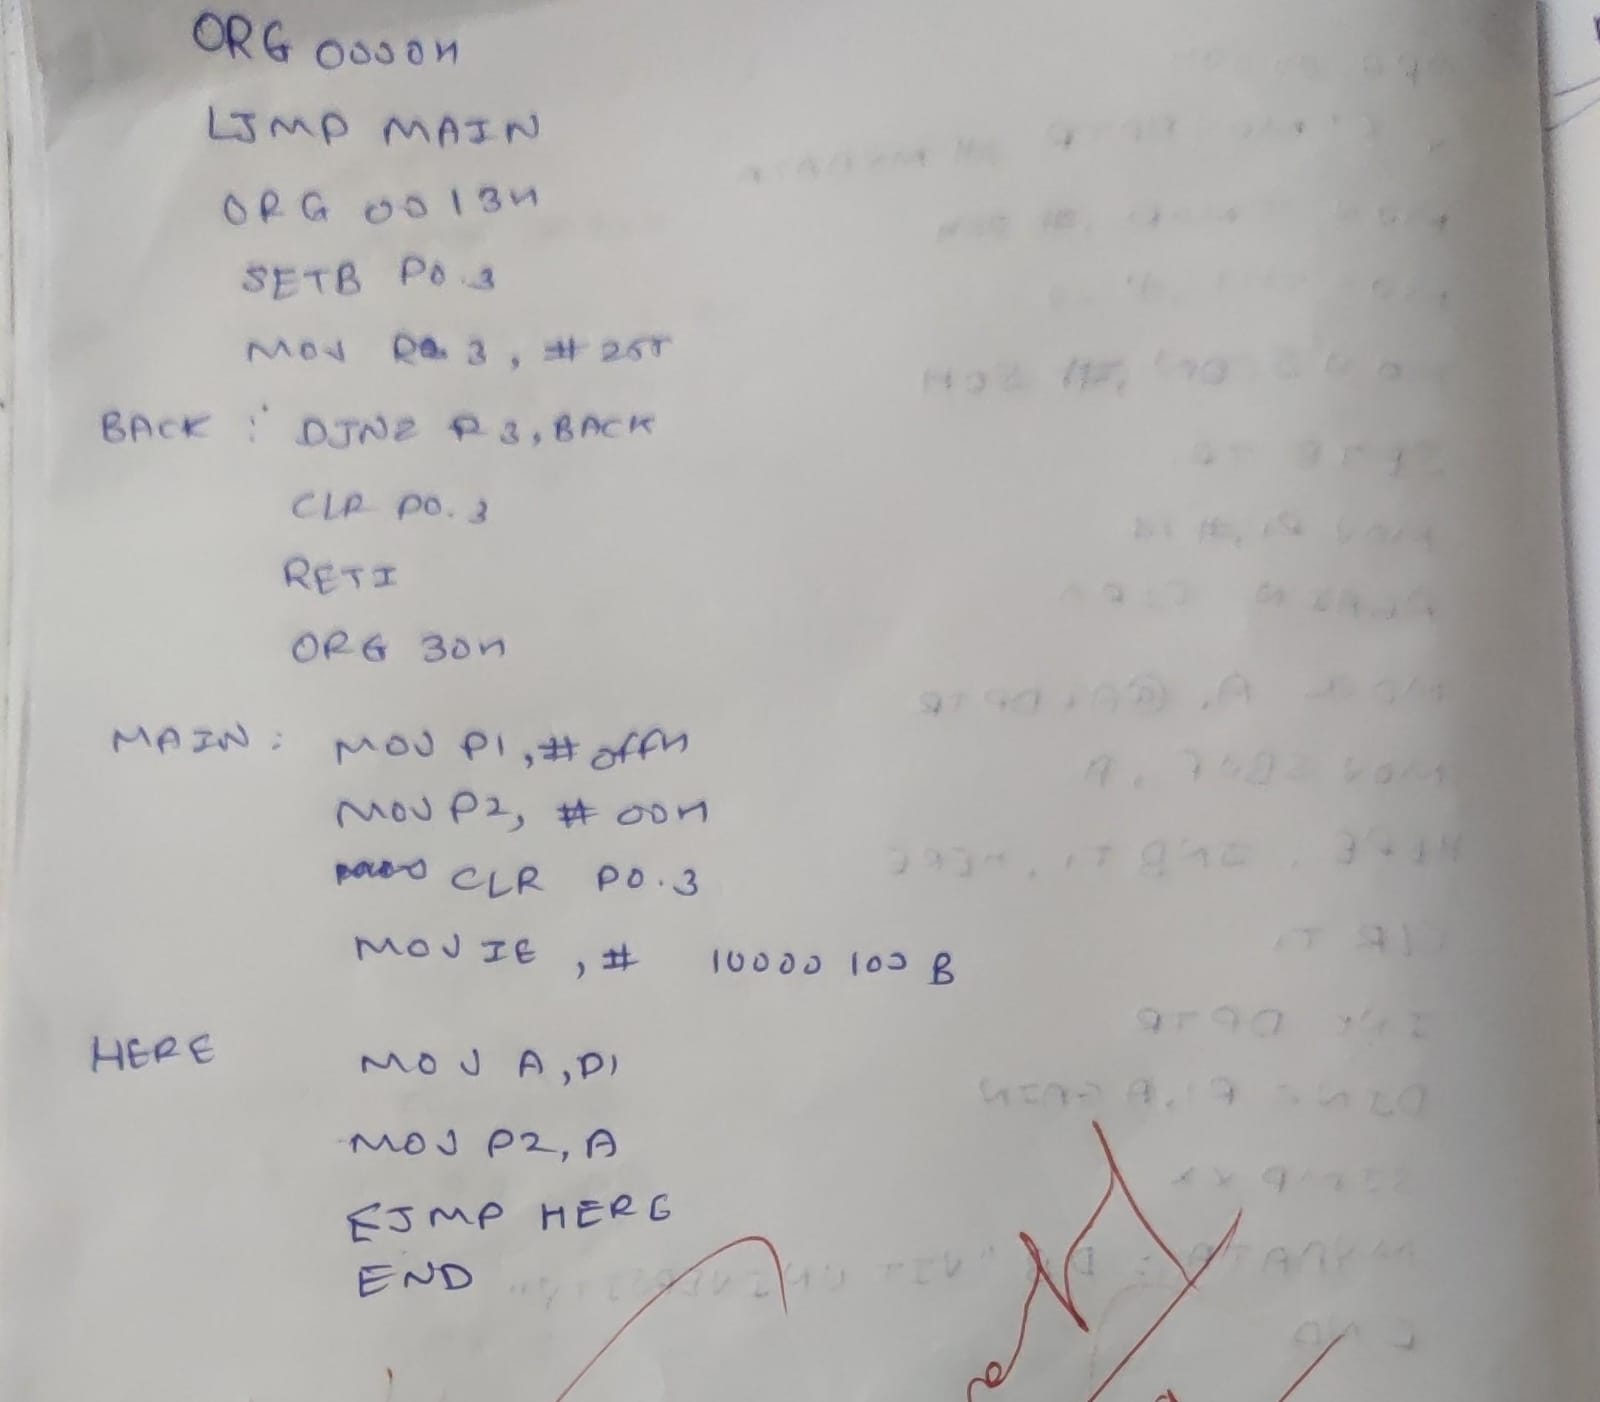 ORG 0000H
LJMP MAIN
ORG 0013H
SETB P0.3
MOV R3, #255
BACK : DJNZ R3, BACK
CLR P0.3
RETI
ORG 30H
MAIN : MOV P1, #0ffH
MOV P2, #00H
CLR P0.3
MOV IE, # 10000100B
HERE MOV A, P1
MOV P2, A
EJMP HERE
END